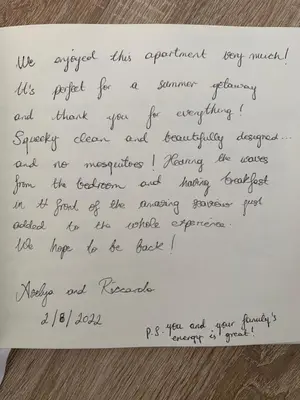 We enjoyed this apartment very much!
It's perfect for a summer getaway
and thank you for everything!
Squeeky clean and beautifully designed...
and no mosquitoes! Hearing the waves
from the bedroom and having breakfast
in front of the amazing seaview just
added to the whole experience.
We hope to be back!
and Riccardo
2/8/2022
P.S. you and your family's
energy is great!